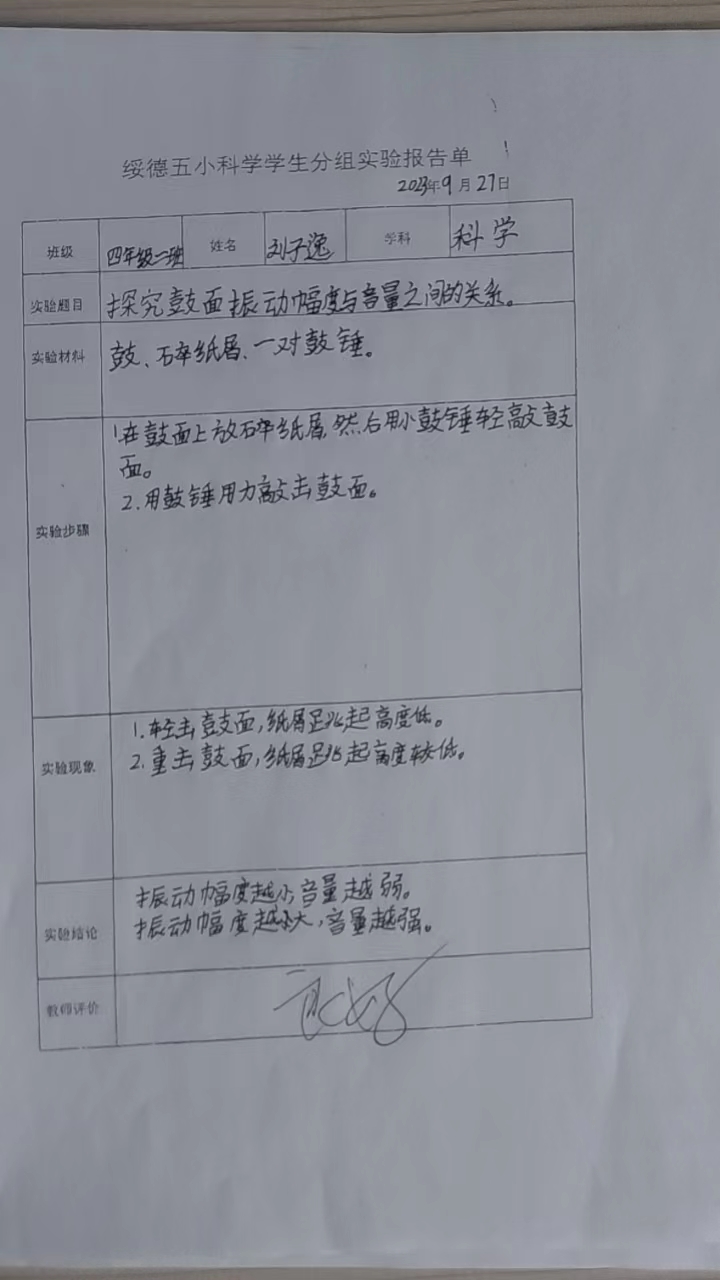 绥德五小科学学生分组实验报告单
2023年9月27日
班级 四年级二班 姓名 刘子逸 学科 科学
实验题目 探究鼓面振动幅度与音量之间的关系。
实验材料 鼓、碎纸屑、一对鼓锤。
1.在鼓面上放碎纸屑,然后用小鼓锤轻敲鼓
面。
2.用鼓锤用力敲击鼓面。
实验步骤
1.轻击鼓面,纸屑跳起高度低。
2.重击鼓面,纸屑跳起高度较低。
实验现象
振动幅度越小,音量越弱。
振动幅度越大,音量越强。
实验结论
教师评价